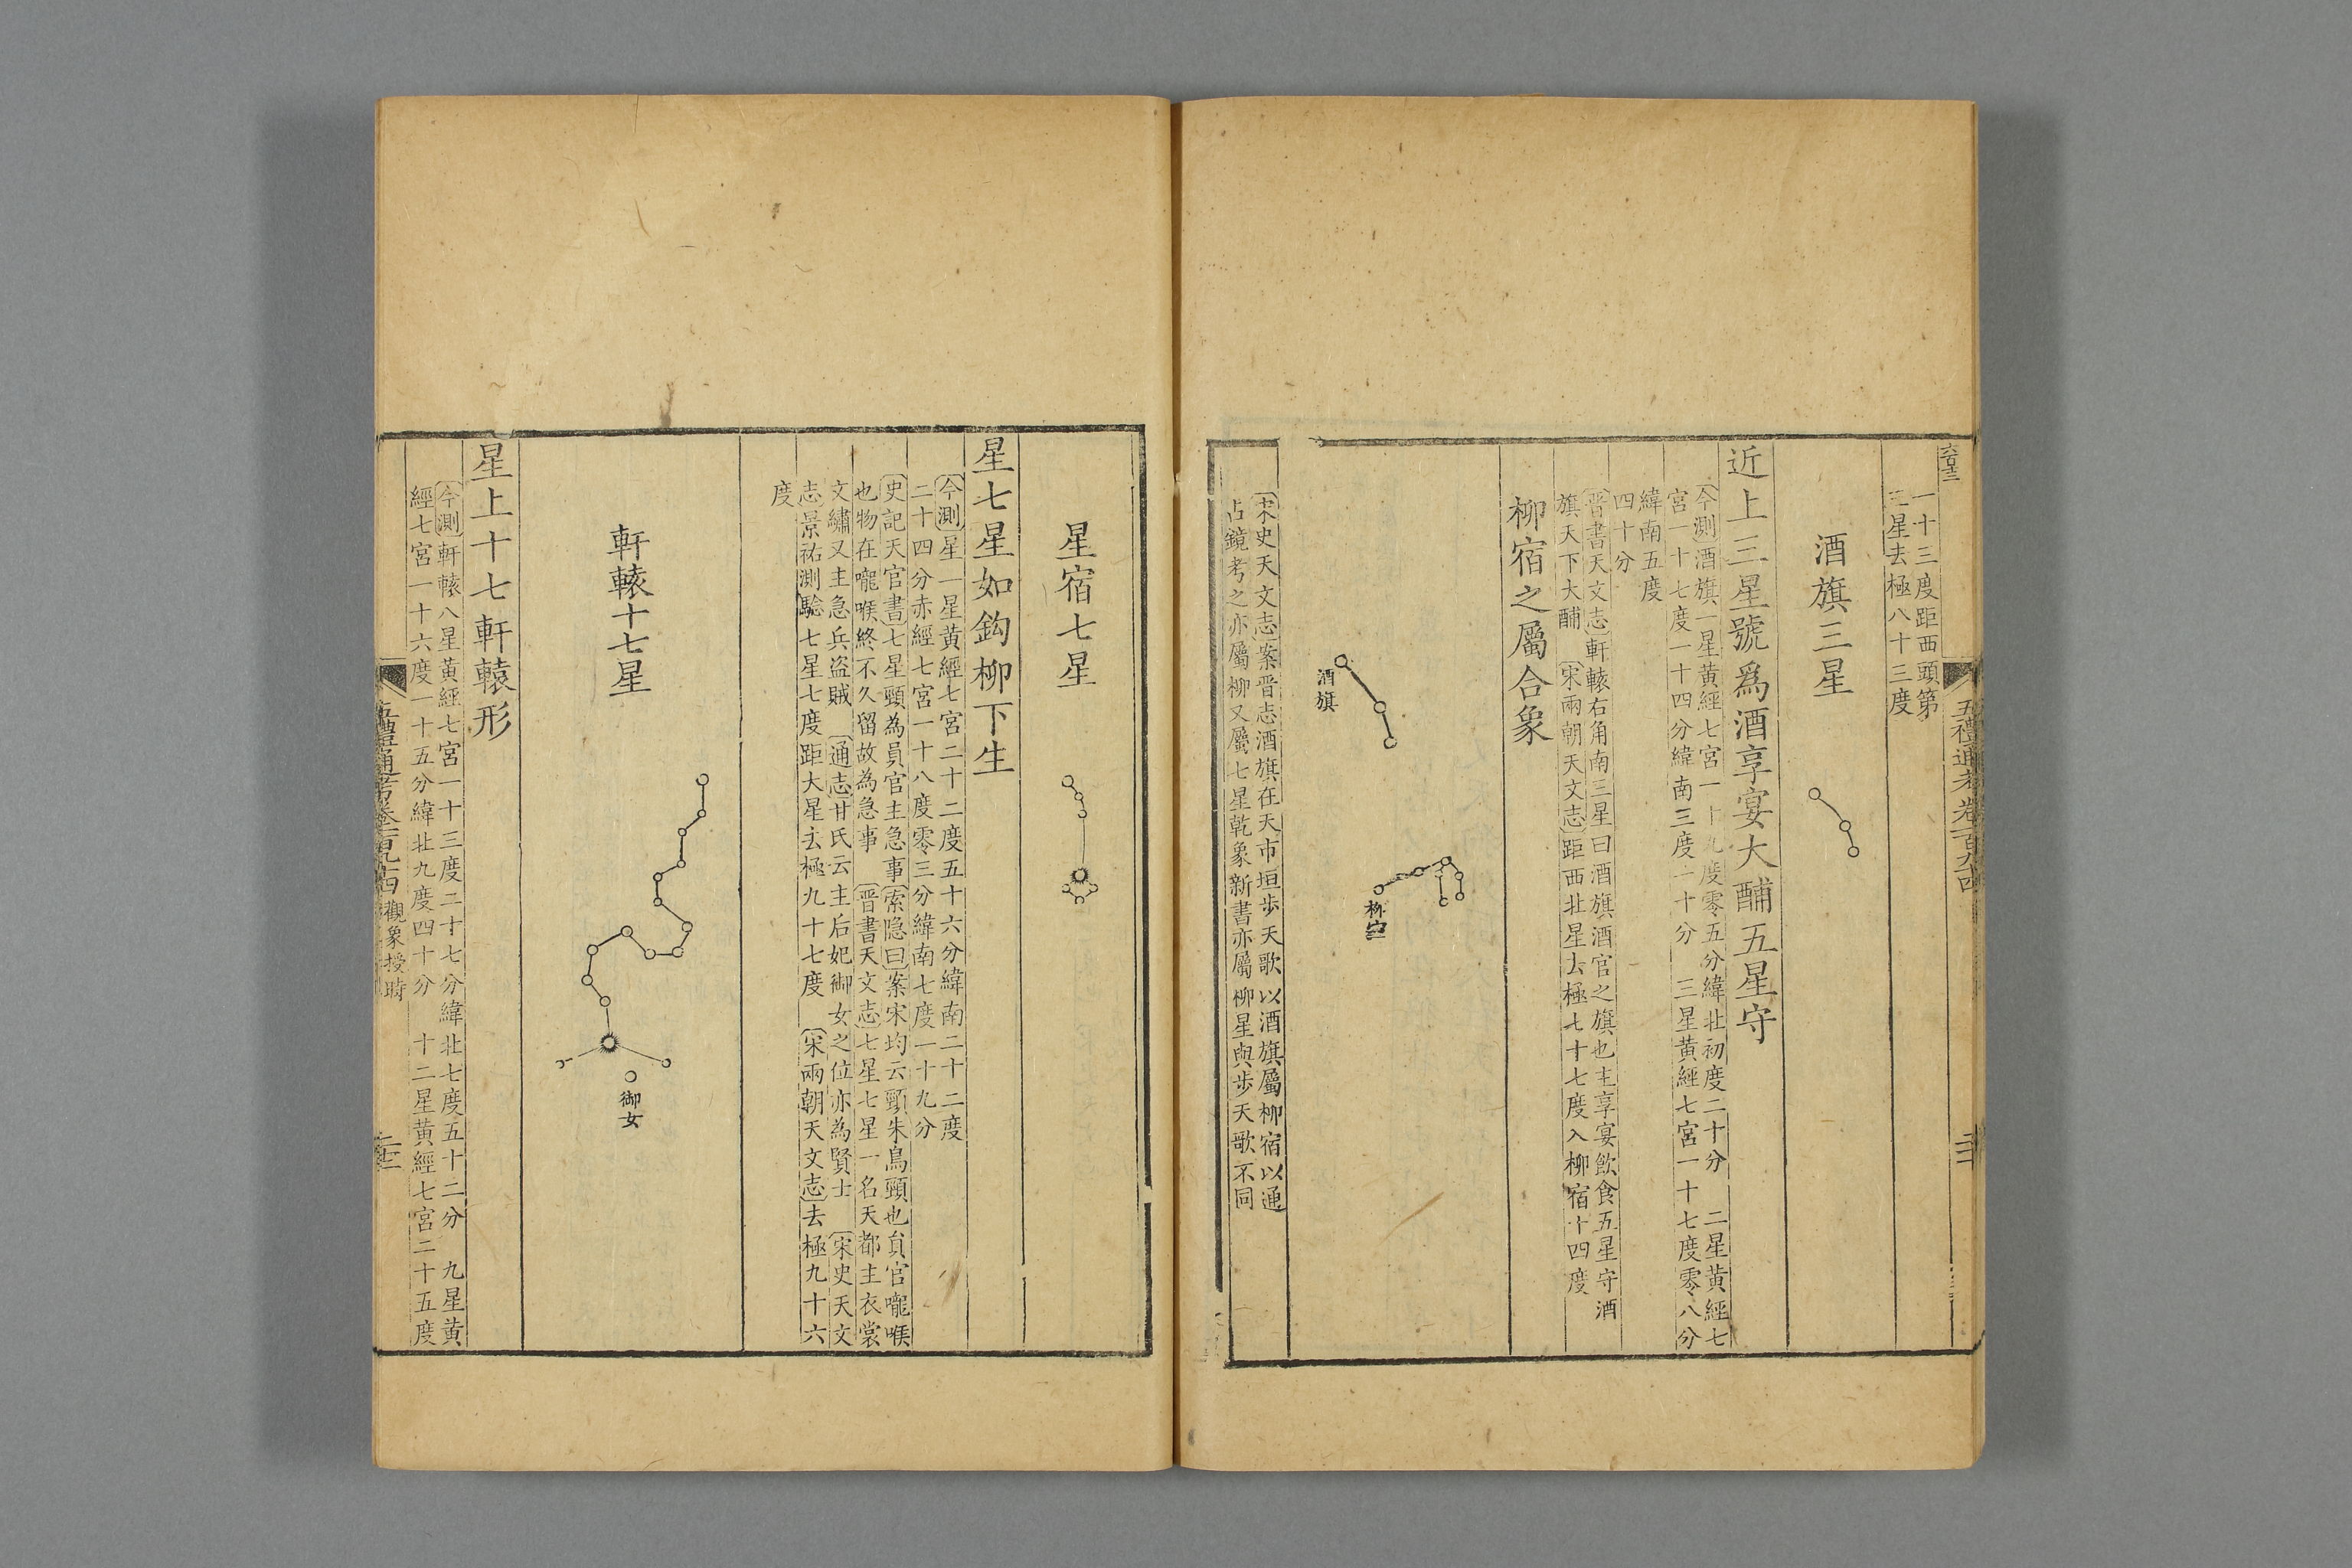 六百十三
一十三度距西頭第
三星去極八十三度
酒旗三星
近上三星號爲酒享宴大酺五星守
今測酒旗一星黃經七宮一十九度零五分緯北初度二十分　二星黃經七
宮一十七度一十四分緯南三度一十分　三星黃經七宮一十七度零八分
緯南五度
四十分
晉書天文志軒轅右角南三星曰酒旗酒官之旗也主享宴飲食五星守酒
旗天下大酺　宋兩朝天文志距西北星去極七十七度入柳宿十四度
柳宿之屬合象
酒旗
柳宿
宋史天文志案晉志酒旗在天市垣步天歌以酒旗屬柳宿以通
占鏡考之亦屬柳又屬七星乾象新書亦屬柳星與步天歌不同
五禮通考卷一百九十四
星宿七星
星七星如鈎柳下生
今測星一星黃經七宮二十二度五十六分緯南二十二度
二十四分赤經七宮一十八度零三分緯南七度一十九分
史記天官書七星頸為員官主急事索隱曰案宋均云頸朱鳥頸也員官嚨喉
也物在嚨喉終不久留故為急事　晉書天文志七星七星一名天都主衣裳
文繡又主急兵盜賊　通志甘氏云主后妃御女之位亦為賢士　宋史天文
志景祐測驗七星七度距大星去極九十七度　宋兩朝天文志去極九十六
度
軒轅十七星
御女
星上十七軒轅形
今測軒轅八星黃經七宮一十三度二十七分緯北七度五十二分　九星黃
經七宮一十六度一十五分緯北九度四十分　十二星黃經七宮二十五度
五禮通考卷一百九十四　觀象授時